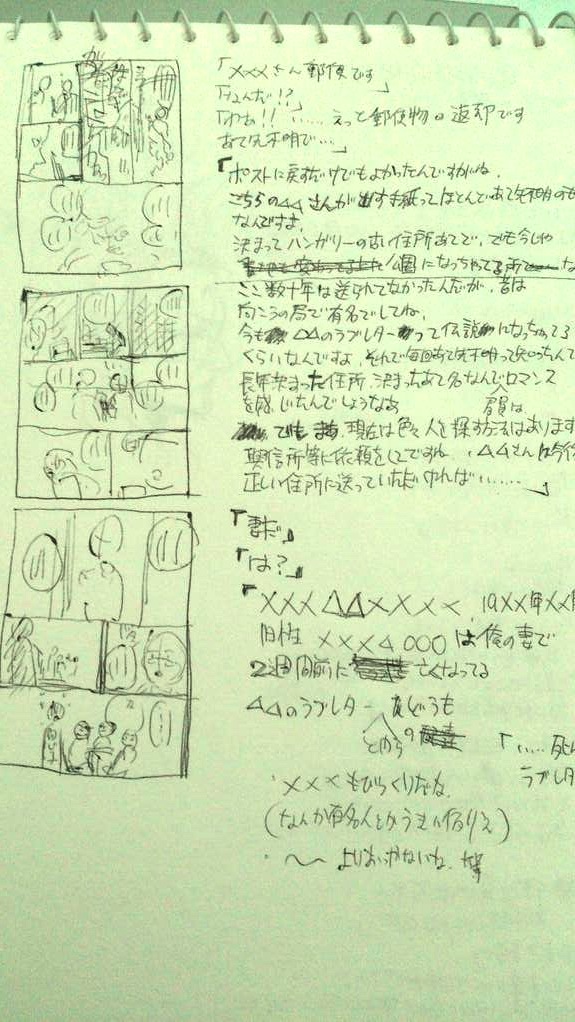 「×××さん郵便です」
「なんだ!?」
「わぁ!! ‥‥‥えっと郵便物の返却です
あて先不明で…」
「ポストに戻すだけでもよかったんですがね.
こちらの△△さんが出す手紙ってほとんどあて先不明のも
なんですよ.
決まってハンガリーの古い住所あてで、でも今じゃ
公園になっちゃってる所で
ここ数十年は送られてなかったんだが、昔は
向こうの局で有名でしてね.
今も△△のラブレターって伝説になっちゃってる
くらいなんですよ、それで毎回あて先不明って
長年決まった住所、決まったあて名なんでロマンス
を感じたんでしょうなあ
局員は
でも 現在は色々人を探す方法はあります
興信所等に依頼をしてですね、△△さんは今後
正しい住所に送っていただければ‥‥‥」
「妻だ」
「は?」
「×××△△××××、19××年××
旧姓 ×××△○○○は俺の妻で
2週間前に 亡くなってる
△△のラブレター
の
「‥‥
ラブレタ
・×××もびっくりだな.
(なんか有名人とか
・〜〜よりはいやないね.